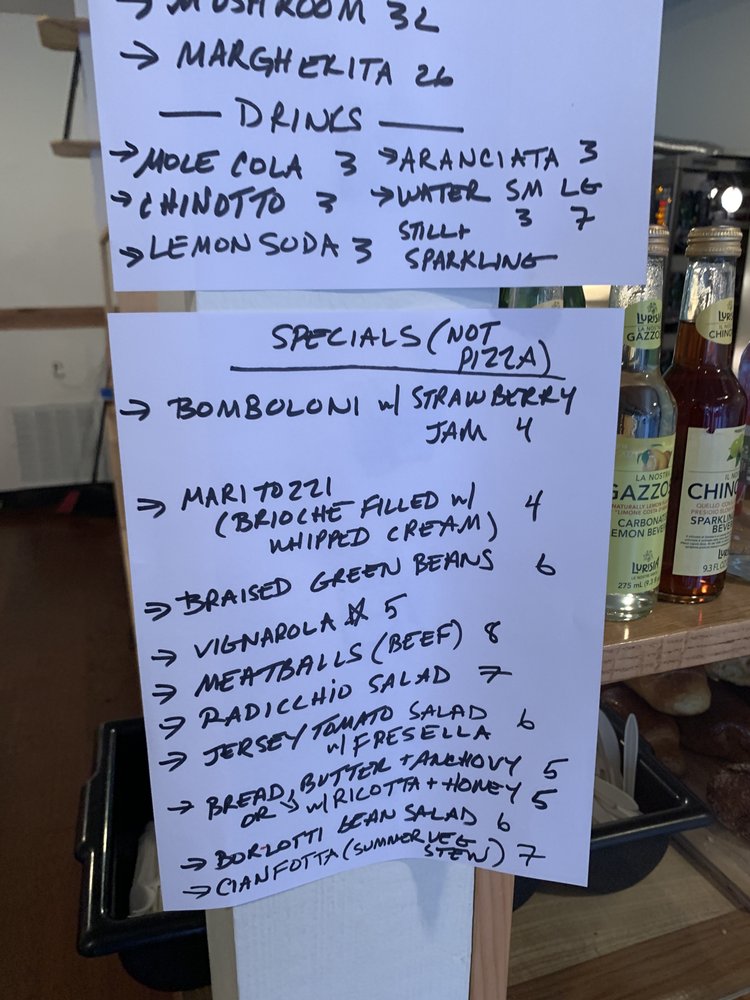 → MUSHROOM 32
→ MARGHERITA 26
— DRINKS —
→ MOLE COLA 3 → ARANCIATA 3
→ CHINOTTO 3 → WATER SM LG
3 7
→ LEMON SODA 3 STILL+
SPARKLING
SPECIALS (NOT
PIZZA)
→ BOMBOLONI w/ STRAWBERRY
JAM 4
→ MARITOZZI
(BRIOCHE FILLED w/ 4
WHIPPED CREAM)
→ BRAISED GREEN BEANS 6
→ VIGNAROLA ☆ 5
→ MEATBALLS (BEEF) 8
→ RADICCHIO SALAD 7
→ JERSEY TOMATO SALAD 6
w/ FRESELLA
→ BREAD, BUTTER + ANCHOVY 5
OR ↘ w/ RICOTTA + HONEY 5
→ BORLOTTI BEAN SALAD 6
→ CIANFOTTA (SUMMER VEG
STEW) 7
LURISIA
LA NOSTRA
GAZZOS
LA NOSTR
GAZZOS
NATURALLY LEMON
CARBONA
EMON BEVER
LURISIA
275 mL (9.3
LURIS
IL N
CHINO
IL N
CHINO
SPARKL
BEVE
9.3 FL O